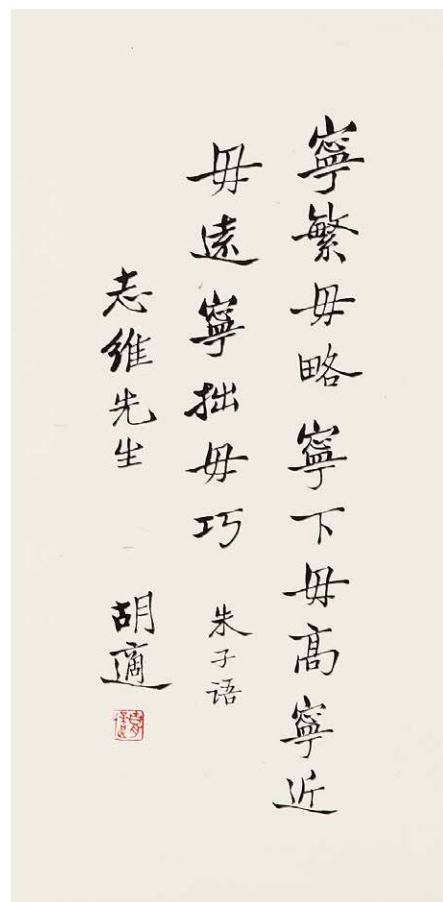 寧繁毋略寧下毋高寧近
毋遠寧拙毋巧 朱子语
志維先生 胡適